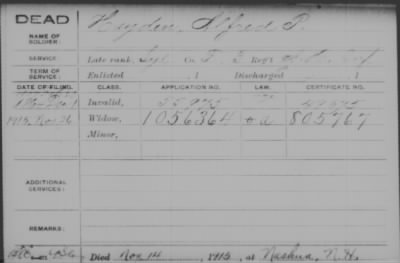 DEAD
NAME OF SOLDIER:
Hayden, Alfred P.
SERVICE:
Late rank, Co. F, 5 Regt
TERM OF SERVICE:
Enlisted , 1 Discharged , 1
DATE OF FILING. CLASS. APPLICATION NO. LAW. CERTIFICATE NO.
Invalid,
1915, Nov 26 Widow, 1056364 805767
Minor,
ADDITIONAL SERVICES:
REMARKS:
Died Nov 14, 1915, at Nashua, N.H.